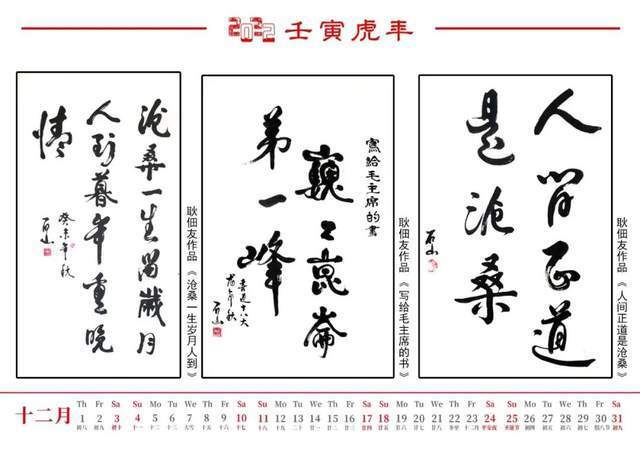 2022 壬寅虎年
沧桑一生留歲月
人到暮年重晚
情
癸未年秋
石山
耿佃友作品《沧桑一生岁月人到》
寫给毛主席的書
巍巍崑崙
第一峰
喜迎十八大
石山
耿佃友作品《写给毛主席的书》
人间正道
是沧桑
石山
耿佃友作品《人间正道是沧桑》
十二月
Th Fr Sa Su Mo Tu We Th Fr Sa Su Mo Tu We Th Fr Sa Su Mo Tu We Th Fr Sa Su Mo Tu We Th Fr Sa
1 2 3 4 5 6 7 8 9 10 11 12 13 14 15 16 17 18 19 20 21 22 23 24 25 26 27 28 29 30 31
初八 初九 初十 十一 十二 十三 大雪 十五 十六 十七 十八 十九 二十 廿一 廿二 廿三 廿四 廿五 廿六 廿七 廿八 冬至 十二月 平安夜 圣诞节 初四 初五 初六 初七 初八 初九